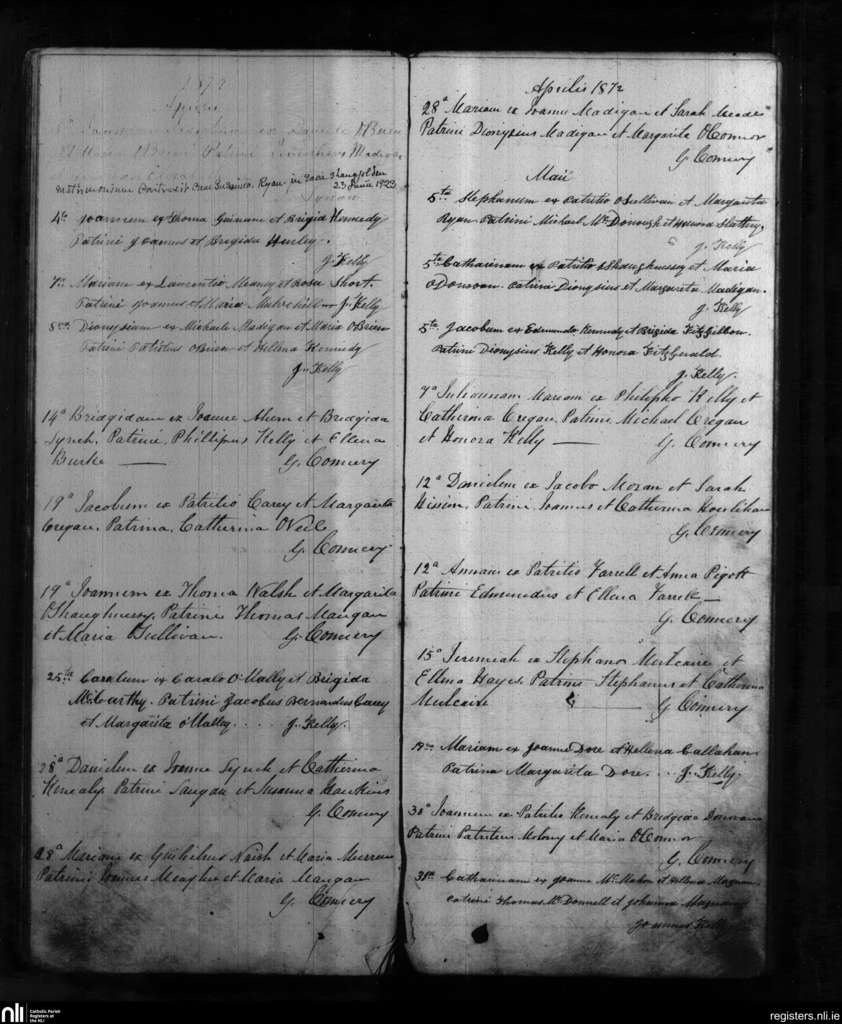 1872
Aprilis
ex Daniele OBrien
et Maria OBrien Patrini Madigan
Matrimonium Contraxit Susanna Ryan in
23 Junii 1923
4to Joannem ex Thoma Guinane et Brigida Kennedy
Patrini Joannes et Brigida Hurley.
J. Kelly
7mo Mariam ex Laurentio Meany et Rosa Short.
Patrini Joannes et Maria J. Kelly
8vo Dionysium ex Michaele Madigan et Maria OBrien
Patrini Patritius OBrien et Hellena Kennedy
J. Kelly
14a Bredgidam ex Joanne Ahern et Bredgida
Lynch, Patrini, Phillipus Kelly et Ellena
Burke
G. Connery
19a Jacobum ex Patritio Carey et Margarita
Cregan, Patrina, Catherina ONeile
G. Connery
19a Joannem ex Thoma Walsh et Margarita
OShaughnessy, Patrini Thomas Mangan
et Maria OSullivan. G. Connery
25to Carolum ex Carolo O'Mally et Brigida
McCarthy. Patrini Jacobus Bernardus Carey
et Margarita O'Malley.... J. Kelly.
28a Danielem ex Joanne Lynch et Catherina
Kenealy Patrini et Susanna Hawkins
G. Connery
28a Mariam ex Gulielmo Naish et Maria
Patrini Joannes Meagher et Maria Mangan
G. Connery
Aprilis 1872
28a Mariam ex Joanne Madigan et Sarah Meade
Patrini Dionysius Madigan et Margarita OConnor
G. Connery
Maii
5to Stephanum ex Patritio OSullivan et Margarita
Ryan. Patrini Michael McDonough et Honora Slattery.
J. Kelly
5to Catharinam ex Patritio OShaughnessy et Maria
ODonovan. Patrini Dionysius et Margarita Madigan.
J. Kelly
5to Jacobum ex Edmundo Kennedy et Brigida FitzGibbon.
Patrini Dionysius Kelly et Honora FitzGerald.
J. Kelly.
7a Juliannam Mariam ex Philipho Kelly et
Catherina Cregan. Patrini Michael Cregan
et Honora Kelly G. Connery
12a Danielem ex Jacobo Moran et Sarah
Patrini Joannes et Catherina Houlihan
G. Connery
12a Annam ex Patritio Farrell et Anna Pigott
Patrini Edmundus et Ellena Farrell
G. Connery
15a Jeremiah ex Stephano Mulcaire et
Ellena Hayes, Patrini Stephanus et Catherina
Mulcaire G. Connery
Mariam ex Joanne Dore et Hellena Callahan
Patrina Margarita Dore... J. Kelly.
30a Joannem ex Patritio Kenealy et Bredgida Donovan
Patrini Patritius Molony et Maria OConnor
G. Connery
31mo Catharinam ex Joanne McMahon et Hellena
Patrini Thomas McDonnell et Johanna
Joannes Kelly
nli
Catholic Parish
Registers at
the NLI
registers.nli.ie